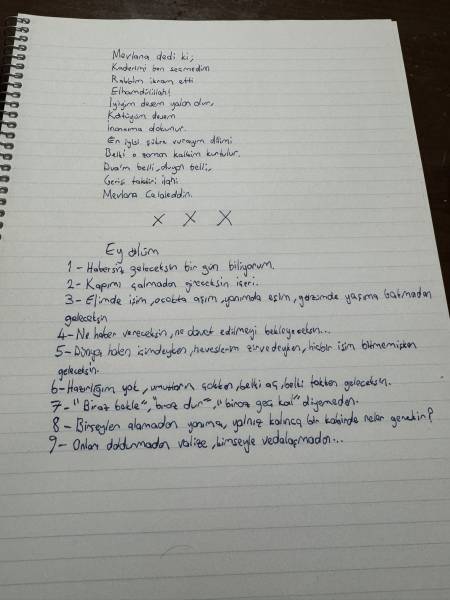 Mevlana dedi ki;
Kaderimi ben seçmedim
Rabbim ikram etti
Elhamdülillah!
İyiyim desem yalan olur,
Kötüyüm desem
İnancıma dokunur.
En iyisi şükre vurayım dilimi
Belki o zaman kalbim kurtulur.
Dua'm belli, duyan belli,
Gerisi takdiri ilahi
Mevlana Celaleddin.
X X X
Ey ölüm
1 - Habersiz geleceksin bir gün biliyorum.
2 - Kapımı çalmadan gireceksin içeri.
3 - Elimde işim, ocakta aşım, yanımda eşim, gözümde yaşıma bakmadan
geleceksin
4 - Ne haber vereceksin, ne davet edilmeyi bekleyeceksin...
5 - Dünya halen içimdeyken, heveslerim zirvedeyken, hiçbir işim bitmemişken
geleceksin.
6 - Hazırlığım yok, umutlarım çokken, belki aç, belki tokken geleceksin.
7 - "Biraz bekle", "biraz dur", "biraz geç kal" diyemeden.
8 - Birşeyler alamadan yanıma, yalnız kalınca bir kabirde neler gerekir?
9 - Onları doldurmadan valize, kimseyle vedalaşmadan...